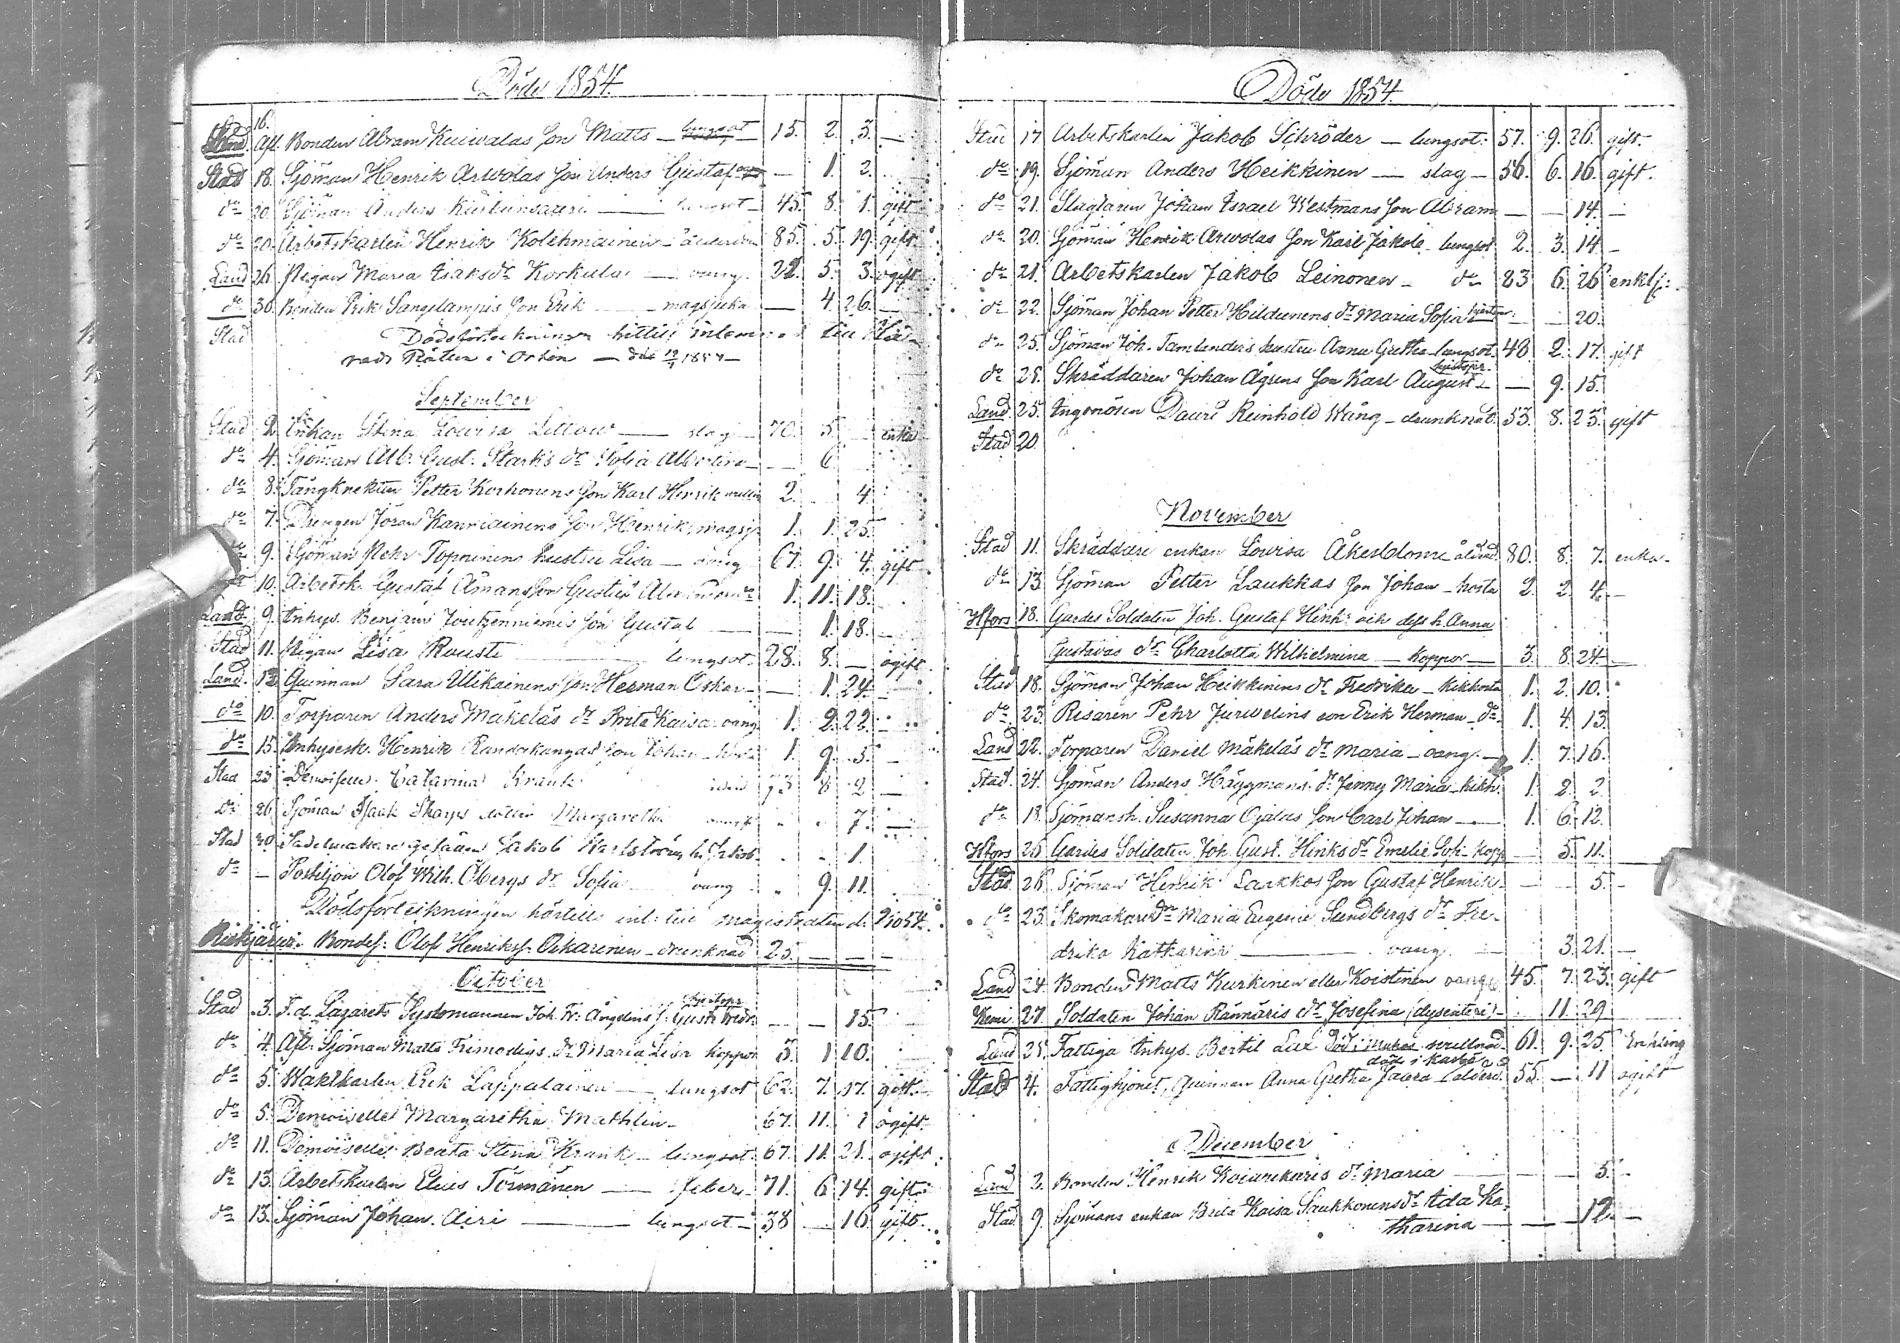 Döde 1854.
Stad 16. Afl. Bonden Abram Kuivalas Son Matts — lungsot 15. 2. 3. —
Stad 18. Sjöman Henrik Arwolas Son Anders Gustaf — 1. 2.
do 20. Sjöman Anders — lungsot 45. 8. 1. gift
do 20. Arbetskarlen Henrik Kolehmainen 85. 5. 19. gift.
Land 26. Pigan Maria Isaksdr Korkula — vang. 22. 5. 3. ogift
do 30. Bonden Erik Son Erik — magsjuka — 4 26. —
Stad Dödsförteckningen hittill till
rads Rätten i Orten — den 1854 —
September
Stad 2. Enkan Stina Lovisa — slag — 70. 5 enka
do 4. Sjöman Alb. Gust. Starks dr Sofia Albertina — — 6
do 8. Fångknekten Petter Korhonens Son Karl Henrik 2. 4
do 7. Drengen Jöran Kanniainens Son Henrik, magsj 1. 1 25.
9. Sjöman Pehr Toppinens hustru Lisa — vang 67. 9. 4. gift
10. Arbetsk. Gustaf Åmans Son Gustaf 1. 11. 18.
Land 9. Inhys. Benjam Son Gustaf — — 1 18. —
Stad 11. Pigan Lisa Rousti — lungsot. 28. 8. — ogift
Land. 12 Quinnan Sara Ulikainens Son Herman Oskar — — 1 24.
do 10. Torparen Anders Mäkeläs dr Brita Kaisa vang 1. 2. 22.
do 15. Inhysesk. Henrik Randakangas Son Johan 1. 9. 5. —
Stad 23 Demoiselle Catarina Krank 73 8 2 —
do 26 Sjöman Isaak dotter Margaretha . . 7. —
Stad 30 Sadelmakare gesällen Jakob Karlström . . 1.
do — Postiljon Olof Wilh. Öbergs dr Sofia — vang . 9 11.
Dödsförteckningen härtill inl: till magistraten d. 54.
Bondes: Olof Henrikss: Oskarinen — drunknad 25. — — —
October
Stad 3. F. d. Lazarets Sysslomannen Joh. Fr. Ångdens S. Gust. Fredr. — — 15.
do 4. Afl. Sjöman Matts Frimodigs dr Maria Lisa koppor 3. 1 10.
do 5. Waktkarlen Erik Lappalainen — lungsot 62. 7. 17. gift.
do 5. Demoiselle Margaretha Mathlin — 67. 11. 1 ogift.
do 11. Demoiselle Beata Stina Krank — lungsot 67. 11. 21. ogift.
do 13. Arbetskarlen Elias Törmänen — feber. 71. 6 14. gift.
do 13. Sjöman Johan Airi — lungsot — 38 — 16 gift.
Döde 1854.
Stad 17 Arbetskarlen Jakob Schröder — lungsot. 57. 9. 26. gift.
do 19. Sjöman Anders Heikkinen — slag — 56. 6. 16. gift.
do 21. Slagtaren Johan Israel Westmans Son Abram — — 14. —
do 20. Sjöman Henrik Arwolas Son Karl Jakob — lungsot 2. 3. 14 —
do 21. Arbetskarlen Jakob Leinonen — do — 83 6. 26 enkl:
do 22. Sjöman Johan Petter Hildunens dr Maria Sofia — — 20.
do 25. Sjöman Joh. Tamlanders hustru Anna Gretha lungsot 48 2. 17. gift
do 25. Skräddaren Johan Ågrens Son Karl August — — 9. 15.
Land 25. Ingenören David Reinhold Wång — drunknat. 53. 8. 23. gift
Stad 20.
November
Stad 11. Skräddare enkan Lovisa Åkerblom ålderd. 80. 8. 7. enka —
do 13. Sjöman Petter Laukkas Son Johan — hosta 2 2. 4. —
Hfors 18. Gardes Soldaten Joh. Gustaf Hink: och dess h. Anna
Gustavas dr Charlotta Wilhelmina — koppor — 3. 8. 24. —
Stad 18. Sjöman Johan Heikkinens dr Fredrika — kikhosta 1. 2. 10.
do 23. Risaren Pehr Jurvelins son Erik Herman — do — 1. 4. 13.
Land 22. Torparen Daniel Mäkeläs dr Maria — vang. — 1. 7. 16.
Stad. 24. Sjöman Anders Häggmans dr Jenny Maria — kikh. 1. 2. 2.
do 18. Sjömansh. Susanna Ojalas Son Carl Johan — 1. 6 12.
Hfors 25 Gardes Soldaten Joh. Gust. Hinks dr Emelie Sofi. kopp — 5. 11.
Stad 26. Sjöman Henrik Laukkos Son Gustaf Henrik. — — 5. —
do 23. Skomakaredr Maria Eugenie Sundbergs dr Fre-
drika Katharina — vang — 3. 21. —
Land 24. Bonden Matts Kurkinen eller Koistinen vang 45. 7. 23. gift
Kemi 27. Soldaten Johan Rännäris dr Josefina (dysenteri) — 11. 29
Land 25. Fattiga Inhys. Bertil Lax 61. 9. 25. Enkling
död i
Stad 4. Fattighjonet, Quinnan Anna Gretha Jaara — ålderd. 55. — 11 ogift
December
Land 2. Bonden Henrik dr Maria — — — 5. —
Stad 9. Sjömans enkan Brita Kaisa Saukkonens dr Ida Ka-
tharina — — — 12. —